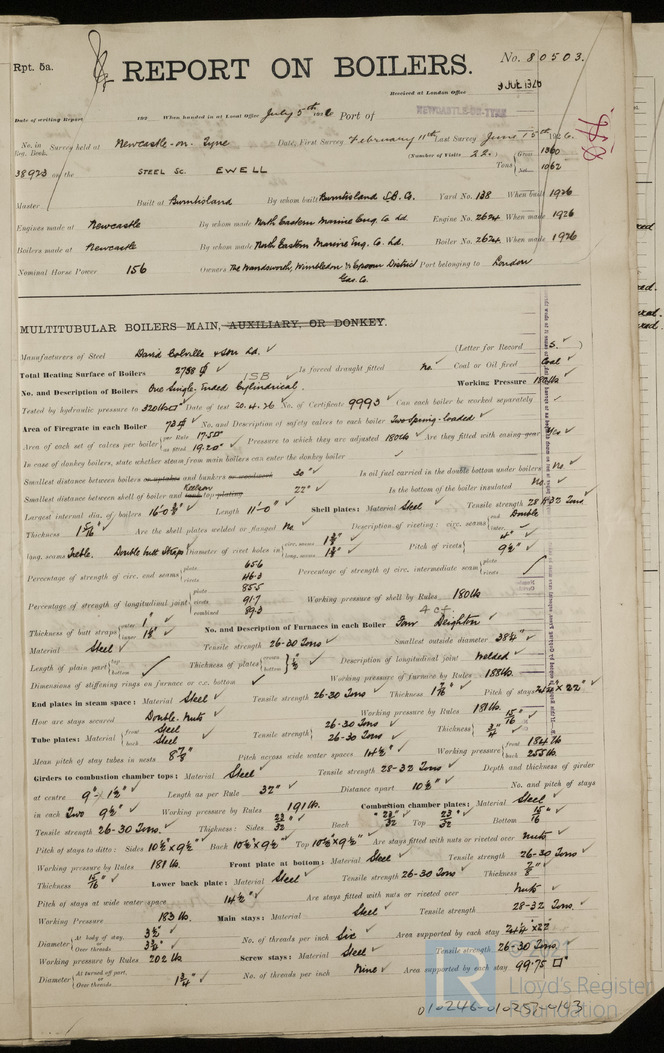 Rpt. 5a.
No. 80503.
REPORT ON BOILERS.
Received at London Office
9 JUL 1926
Date of writing Report 192 When handed in at Local Office July 5th 1926 Port of NEWCASTLE-ON-TYNE
No. in Reg. Book. Survey held at Newcastle-on-Tyne Date, First Survey February 11th Last Survey June 15th 1926.
(Number of Visits 22.) Gross 1360
38923 on the STEEL SC. EWELL Tons Net 1062
Master Built at Burntisland By whom built Burntisland S.B. Co. Yard No. 138 When built 1926
Engines made at Newcastle By whom made North Eastern Marine Eng. Co. Ld. Engine No. 2624 When made 1926
Boilers made at Newcastle By whom made North Eastern Marine Eng. Co. Ld. Boiler No. 2624 When made 1926
Nominal Horse Power 156 Owners The Wandsworth, Wimbledon & Epsom District Gas. Co. Port belonging to London
MULTITUBULAR BOILERS—MAIN, AUXILIARY, OR DONKEY.
Manufacturers of Steel David Colville & Son Ld. (Letter for Record S.)
Total Heating Surface of Boilers 2788 Is forced draught fitted No. Coal or Oil fired Coal
1SB
No. and Description of Boilers One Single-Ended Cylindrical. Working Pressure 180 lbs.
Tested by hydraulic pressure to 320 lbs Date of test 20.4.26 No. of Certificate 9993 Can each boiler be worked separately
Area of Firegrate in each Boiler 73 No. and Description of safety valves to each boiler Two Spring-loaded
Area of each set of valves per boiler per Rule 17.5 as fitted 19.20 Pressure to which they are adjusted 180 lb. Are they fitted with easing gear Yes
In case of donkey boilers, state whether steam from main boilers can enter the donkey boiler
Smallest distance between boilers or uptakes and bunkers or woodwork 30" Is oil fuel carried in the double bottom under boilers No.
Smallest distance between shell of boiler and tank top plating Keelson 22" Is the bottom of the boiler insulated No.
Largest internal dia. of boilers Length 11'-0" Shell plates: Material Steel Tensile strength 28-32 Tons
Thickness Are the shell plates welded or flanged No Description of riveting: circ. seams end Double inter.
long. seams Treble. Double butt straps Diameter of rivet holes in circ. seams long. seams Pitch of rivets 4"
Percentage of strength of circ. end seams plate 65.6 rivets 46.3 Percentage of strength of circ. intermediate seam plate rivets
Percentage of strength of longitudinal joint plate 85.5 rivets 91.7 combined 89.3 Working pressure of shell by Rules 180 lb
Thickness of butt straps outer 1" inner No. and Description of Furnaces in each Boiler Four Deighton
4 c f.
Material Steel Tensile strength 26-30 Tons Smallest outside diameter 38¼"
Length of plain part top bottom Thickness of plates crown bottom Description of longitudinal joint Welded
Dimensions of stiffening rings on furnace or c.c. bottom Working pressure of furnace by Rules 188 lb.
End plates in steam space: Material Steel Tensile strength 26-30 Tons Thickness Pitch of stays
How are stays secured Double-Nuts Working pressure by Rules 181 lb.
Tube plates: Material front Steel back Steel Tensile strength 26-30 Tons 26-30 Tons Thickness 15/16 3/4"
Mean pitch of stay tubes in nests Pitch across wide water spaces 14½" Working pressure front 184 lb back 255 lb.
Girders to combustion chamber tops: Material Steel Tensile strength 28-32 Tons Depth and thickness of girder
at centre Length as per Rule 32" Distance apart 10½" No. and pitch of stays
in each Two 9½" Working pressure by Rules 191 lb. Combustion chamber plates: Material Steel
Tensile strength 26-30 Tons. Thickness: Sides 23/32 Back 23/32" Top 23/32" Bottom 15/16
Pitch of stays to ditto: Sides 10½"×9½" Back 10½"×9½" Top 10½"×9½" Are stays fitted with nuts or riveted over Nuts
Working pressure by Rules 181 lb. Front plate at bottom: Material Steel Tensile strength 26-30 Tons
Thickness 15/16" Lower back plate: Material Steel Tensile strength 26-30 Tons Thickness 7/8"
Pitch of stays at wide water space 14½" Are stays fitted with nuts or riveted over Nuts
Working Pressure 183 lb. Main stays: Material Steel Tensile strength 28-32 Tons.
Diameter At body of stay, or Over threads No. of threads per inch Six Area supported by each stay
Working pressure by Rules 202 lb Screw stays: Material Steel Tensile strength 26-30 Tons.
Diameter At turned off part, or Over threads 1¾" No. of threads per inch Nine Area supported by each stay 99.75
© 2021
Lloyd's Register
Foundation